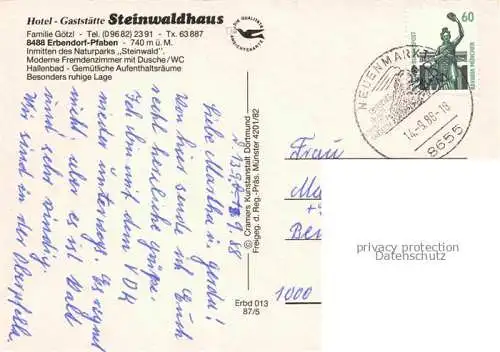 Hotel - Gaststätte Steinwaldhaus
Familie Götzl - Tel. (0 96 82) 23 91 - Tx. 63 887
8488 Erbendorf-Pfaben - 740 m ü. M.
Inmitten des Naturparks „Steinwald".
Moderne Fremdenzimmer mit Dusche/WC
Hallenbad - Gemütliche Aufenthaltsräume
Besonders ruhige Lage
DIE QUALITÄTS
ANSICHTSKARTE
60
NEUENMARKT
14.-9.88-18
8655
© Cramers Kunstanstalt Dortmund
Freigeg. d. Reg.-Präs. Münster 4201/82
Erbd 013
87/5
13.9.88
Liebe Martha u. Gerda!
Von hier sende ich Euch
recht herzliche Grüße.
Ich bin mit dem VDK
wieder unterwegs. Es regnet
nicht, aber es ist kalt
und sehr windig.
Wir sind in der Oberpfalz.
Frau
1000
privacy protection
DELCAMPE